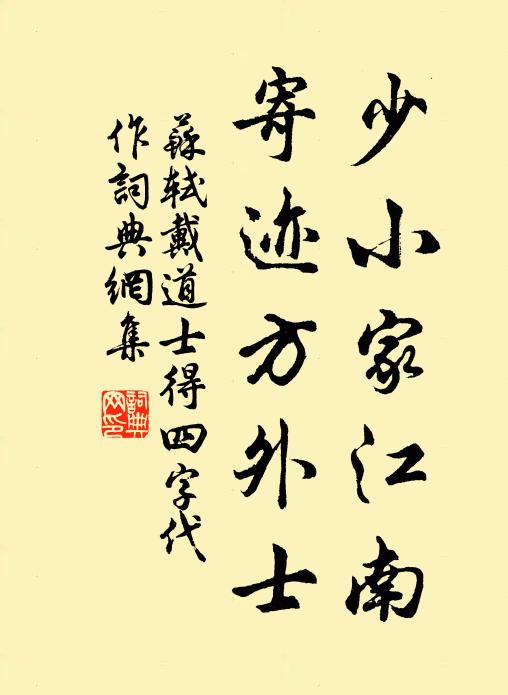 少小家江南
寄迹方外士
蘇軾戴道士得四字代
作詞典網集
詞典
网印